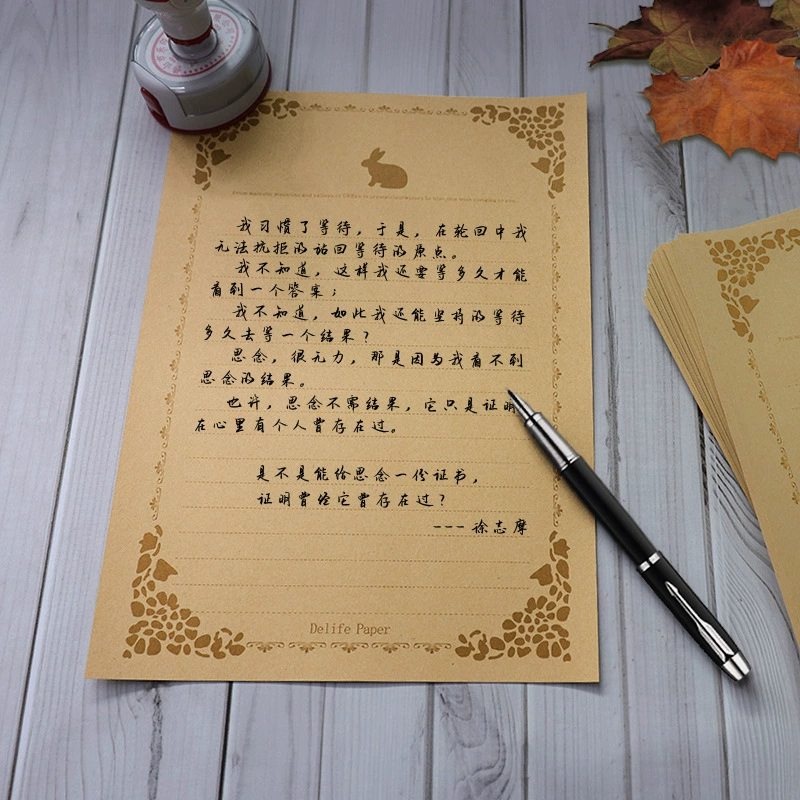 我习惯了等待，于是，在轮回中我
无法抗拒的站回等待的原点。
我不知道，这样我还要等多久才能
看到一个答案；
我不知道，如此我还能坚持的等待
多久去等一个结果？
思念，很无力，那是因为我看不到
思念的结果。
也许，思念不需结果，它只是证明
在心里有个人曾存在过。
是不是能给思念一份证书，
证明曾经它曾存在过？
--- 徐志摩
Delife Paper